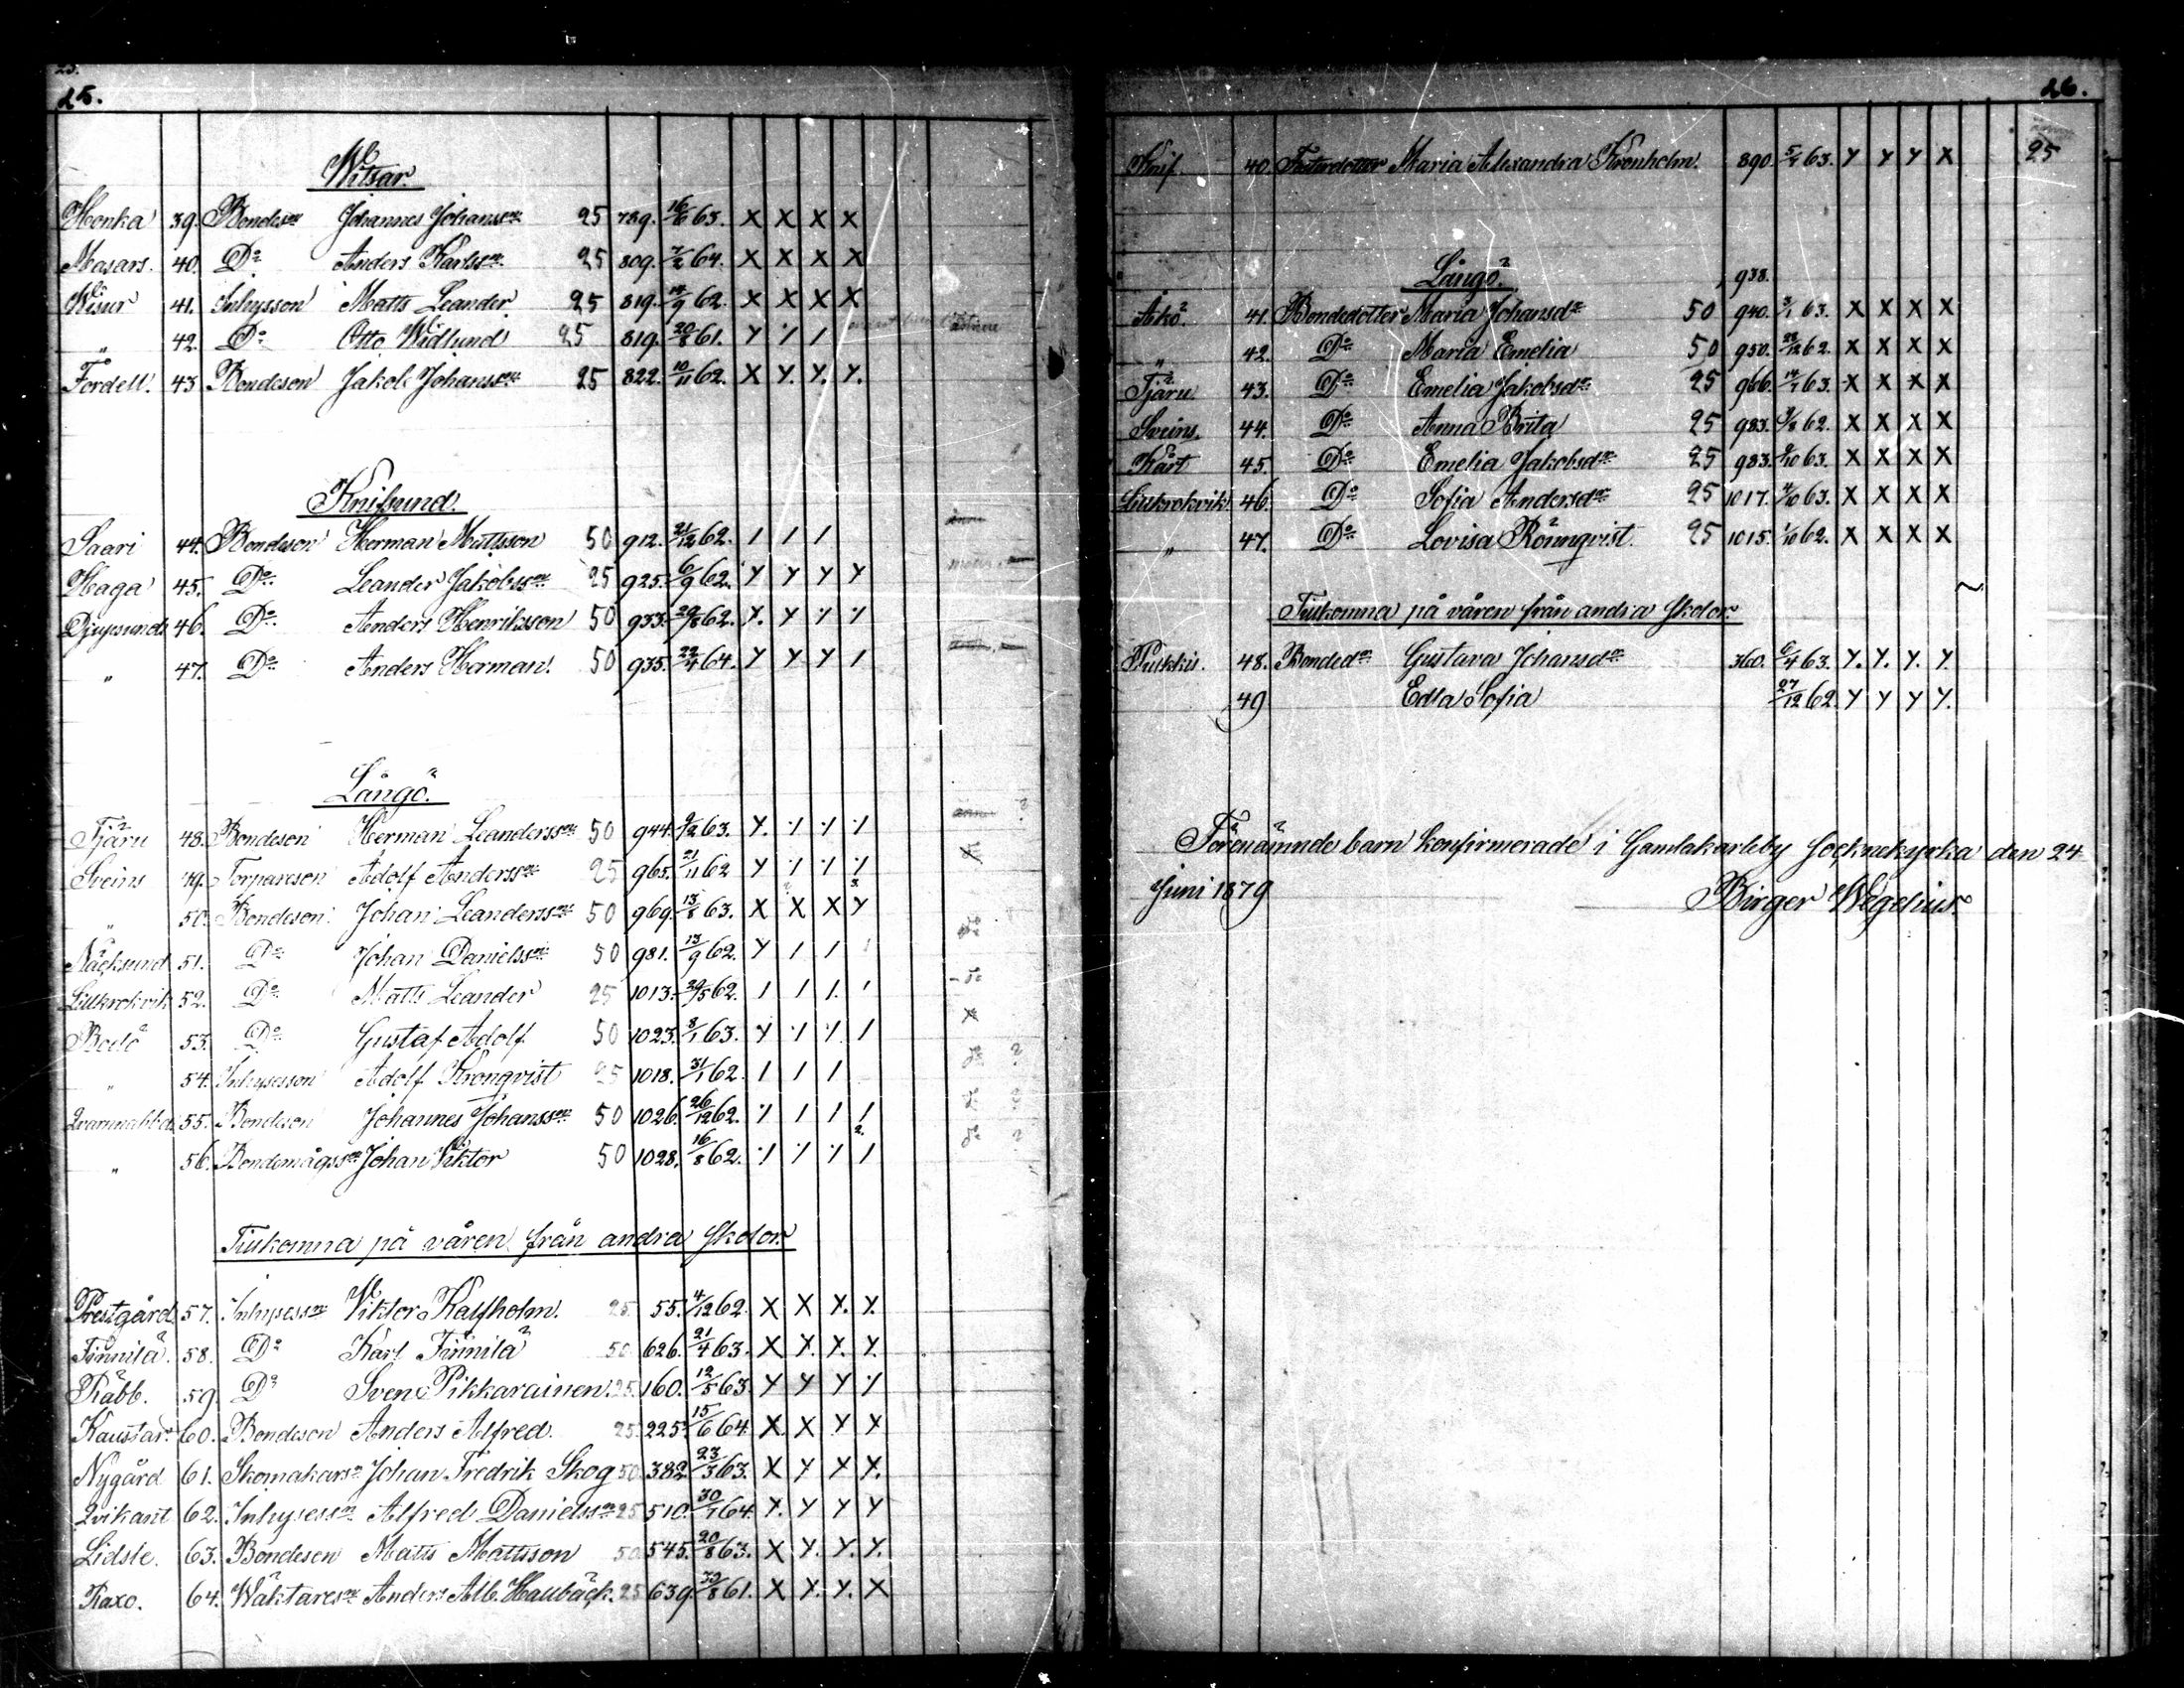 25.
Witsar.
Honka 39. Bondeson Johannes Johansson 25 789. 16/6 63. X X X X
Masars. 40. Do Anders Karlsson 25 809. 7/2 64. X X X X
Wisur 41. Inhysson Matts Leander. 25 819. 14/9 62. X X X X
„ 42. Do Otto Widlund 25 819. 20/8 61. Y ⁒ /
Fordell. 43. Bondeson Jakob Johansson 25 822. 10/11 62. X Y. Y. Y.
Knifsund.
Saari 44. Bondeson Herman Mattsson 50 912. 21/12 62. / / /
Haga 45. Do Leander Jakobsson 25 925. 6/9 62. Y Y Y Y
Djupsunds 46. Do Anders Henriksson 50 933. 29/8 62. Y. Y ⁒ ⁒
„ 47. Do Anders Herman. 50 935. 22/4 64. Y Y Y /
Långö.
Tjäru 48. Bondeson Herman Leandersson 50 944. 9/2 63. Y. ⁒ ⁒ ⁒
Sveins 49. Torpareson Adolf Andersson 25 965. 21/11 62 Y ⁒ ⁒ ⁒
„ 50. Bondeson Johan Leandersson 50 969. 13/8 63. X X X Y
Näcksund 51. Do Johan Danielsson 50 981. 13/9 62. Y / / /
Lillkrokvik 52. Do Matts Leander 25 1013. 29/5 62. / / /. /
Bodö 53. Do Gustaf Adolf 50 1023. 8/1 63. Y ⁒ ⁒ /
„ 54. Inhyseson Adolf Kronqvist 25 1018. 31/1 62. / / /
Qvarnabba 55. Bondeson Johannes Johansson 50 1026. 26/12 62. ⁒ / / /
„ 56. Bondemågsson Johan Viktor 50 1028. 16/8 62. ⁒ ⁒ ⁒ /
Tillkomna på våren från andra skolor.
Prestgård 57. Inhysesson Viktor Kalfholm. 25 55. 4/12 62. X X Y. Y.
Finnilä. 58. Do Karl Finnilä 50 626. 21/4 63. X Y. Y. Y.
Räbb. 59. Do Sven Pikkarainen. 25. 160. 12/5 63. Y Y Y ⁒
Kaustar. 60. Bondeson Anders Alfred. 25. 225. 15/6 64. X X Y Y
Nygård 61. Skomakarson Johan Fredrik Skog 50. 382. 23/3 63. X Y Y Y.
Qvikant 62. Inhysesson Alfred Danielsson 25 510. 30/1 64. Y. Y Y Y
Lidsle. 63. Bondeson Matts Mattsson 50 545. 20/8 63. X Y. Y. Y.
Raxo. 64. Wäktareson Anders Alb. Haubäck. 25 639. 30/8 61. X Y. Y. X
26.
Knif. 40. Fosterdotter Maria Alexandra Kronholm. 890. 5/1 63. Y Y Y X 25
Långö. 938.
Åkö. 41. Bondedotter Maria Johansdr 50 940. 3/1 63. X X X X
„ 42. Do Maria Emelia 50 950. 22/12 62. X X X X
Tjäru 43. Do Emelia Jakobsdr 25 966. 14/1 63. X X X X
Sveins. 44. Do Anna Brita 25 983. 3/8 62. X X X X
Kårt 45. Do Emelia Jakobsdr 25 983. 9/10 63. X X X X
Lillkrokvik 46. Do Sofia Andersdr 25 1017. 4/10 63. X X X X
„ 47. Do Lovisa Rönnqvist. 25 1015. 1/10 62. X X X X
Tillkomna på våren från andra skolor.
Pulkkis. 48. Bondedr Gustava Johansdr 360. 6/4 63. Y. Y. Y. Y.
49 Edla Sofia 27/12 62. Y Y Y Y.
Förenämnde barn konfirmerade i Gamlakarleby Socknekyrka den 24
Juni 1879
Birger Wegelius.